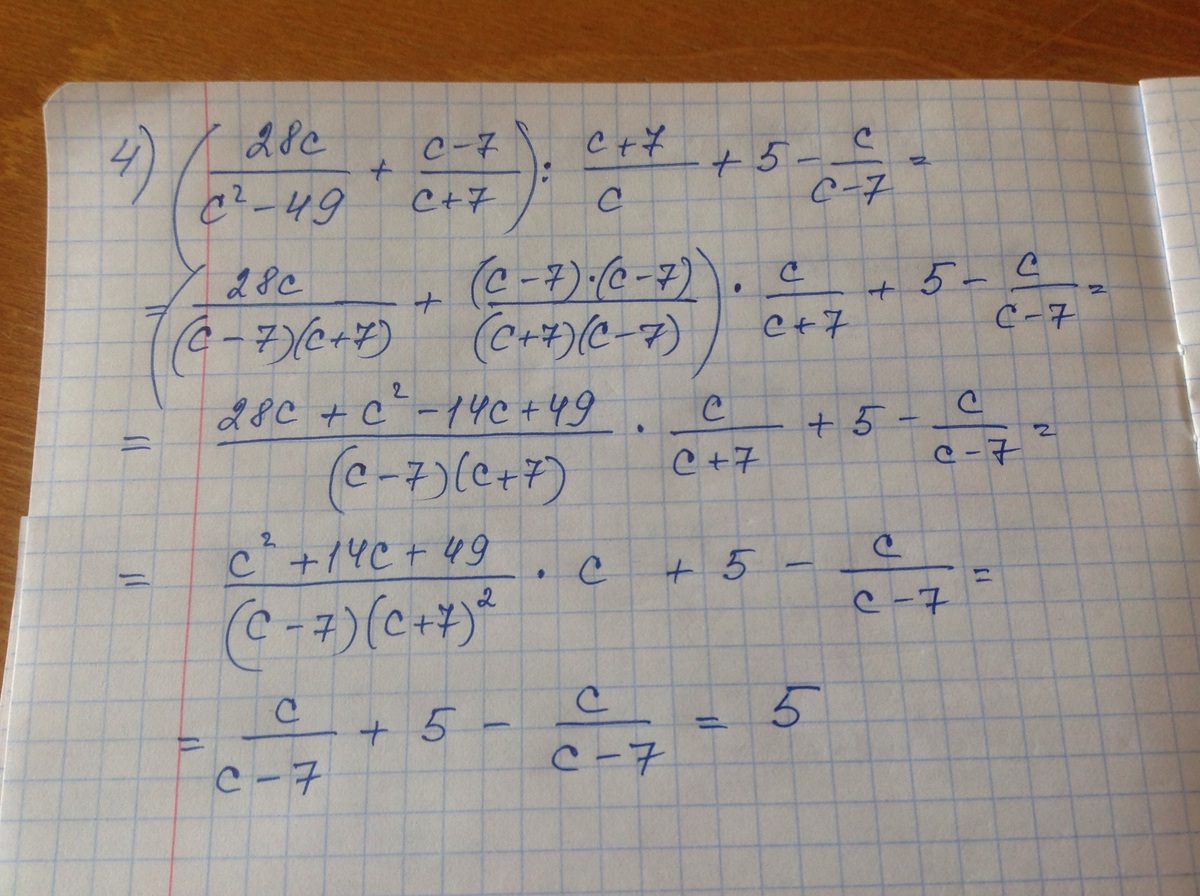 4) (28c/(c² - 49) + (c - 7)/(c + 7)) : (c + 7)/c + 5 - c/(c - 7) =
= (28c/((c - 7)(c + 7)) + ((c - 7)·(c - 7))/((c + 7)(c - 7))) · c/(c + 7) + 5 - c/(c - 7) =
= (28c + c² - 14c + 49)/((c - 7)(c + 7)) · c/(c + 7) + 5 - c/(c - 7) =
= (c² + 14c + 49)/((c - 7)(c + 7)²) · c + 5 - c/(c - 7) =
= c/(c - 7) + 5 - c/(c - 7) = 5